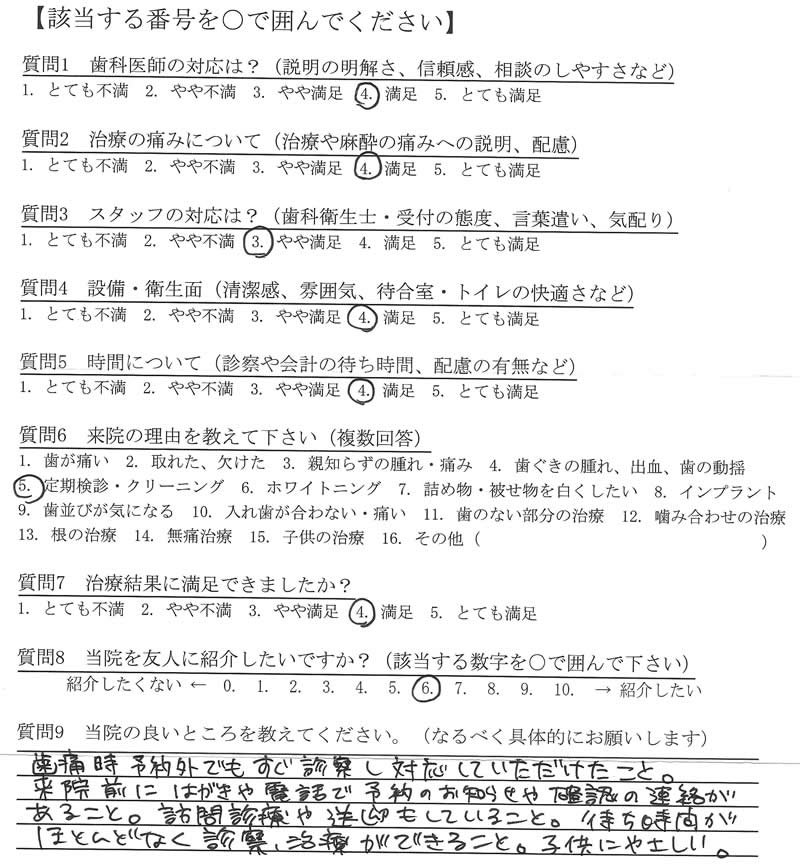 【該当する番号を○で囲んでください】
質問1　歯科医師の対応は？（説明の明解さ、信頼感、相談のしやすさなど）
1. とても不満　2. やや不満　3. やや満足　4. 満足　5. とても満足
質問2　治療の痛みについて（治療や麻酔の痛みへの説明、配慮）
1. とても不満　2. やや不満　3. やや満足　4. 満足　5. とても満足
質問3　スタッフの対応は？（歯科衛生士・受付の態度、言葉遣い、気配り）
1. とても不満　2. やや不満　3. やや満足　4. 満足　5. とても満足
質問4　設備・衛生面（清潔感、雰囲気、待合室・トイレの快適さなど）
1. とても不満　2. やや不満　3. やや満足　4. 満足　5. とても満足
質問5　時間について（診察や会計の待ち時間、配慮の有無など）
1. とても不満　2. やや不満　3. やや満足　4. 満足　5. とても満足
質問6　来院の理由を教えて下さい（複数回答）
1. 歯が痛い　2. 取れた、欠けた　3. 親知らずの腫れ・痛み　4. 歯ぐきの腫れ、出血、歯の動揺
5. 定期検診・クリーニング　6. ホワイトニング　7. 詰め物・被せ物を白くしたい　8. インプラント
9. 歯並びが気になる　10. 入れ歯が合わない・痛い　11. 歯のない部分の治療　12. 噛み合わせの治療
13. 根の治療　14. 無痛治療　15. 子供の治療　16. その他（　　　）
質問7　治療結果に満足できましたか？
1. とても不満　2. やや不満　3. やや満足　4. 満足　5. とても満足
質問8　当院を友人に紹介したいですか？（該当する数字を○で囲んで下さい）
紹介したくない ← 0. 1. 2. 3. 4. 5. 6. 7. 8. 9. 10. → 紹介したい
質問9　当院の良いところを教えてください。（なるべく具体的にお願いします）
歯痛時予約外でもすぐ診察し対応していただけたこと。
来院前にはがきや電話で予約のお知らせや確認の連絡が
あること。訪問診療や送迎もしていること。待ち時間が
ほとんどなく診察、治療ができること。子供にやさしい。